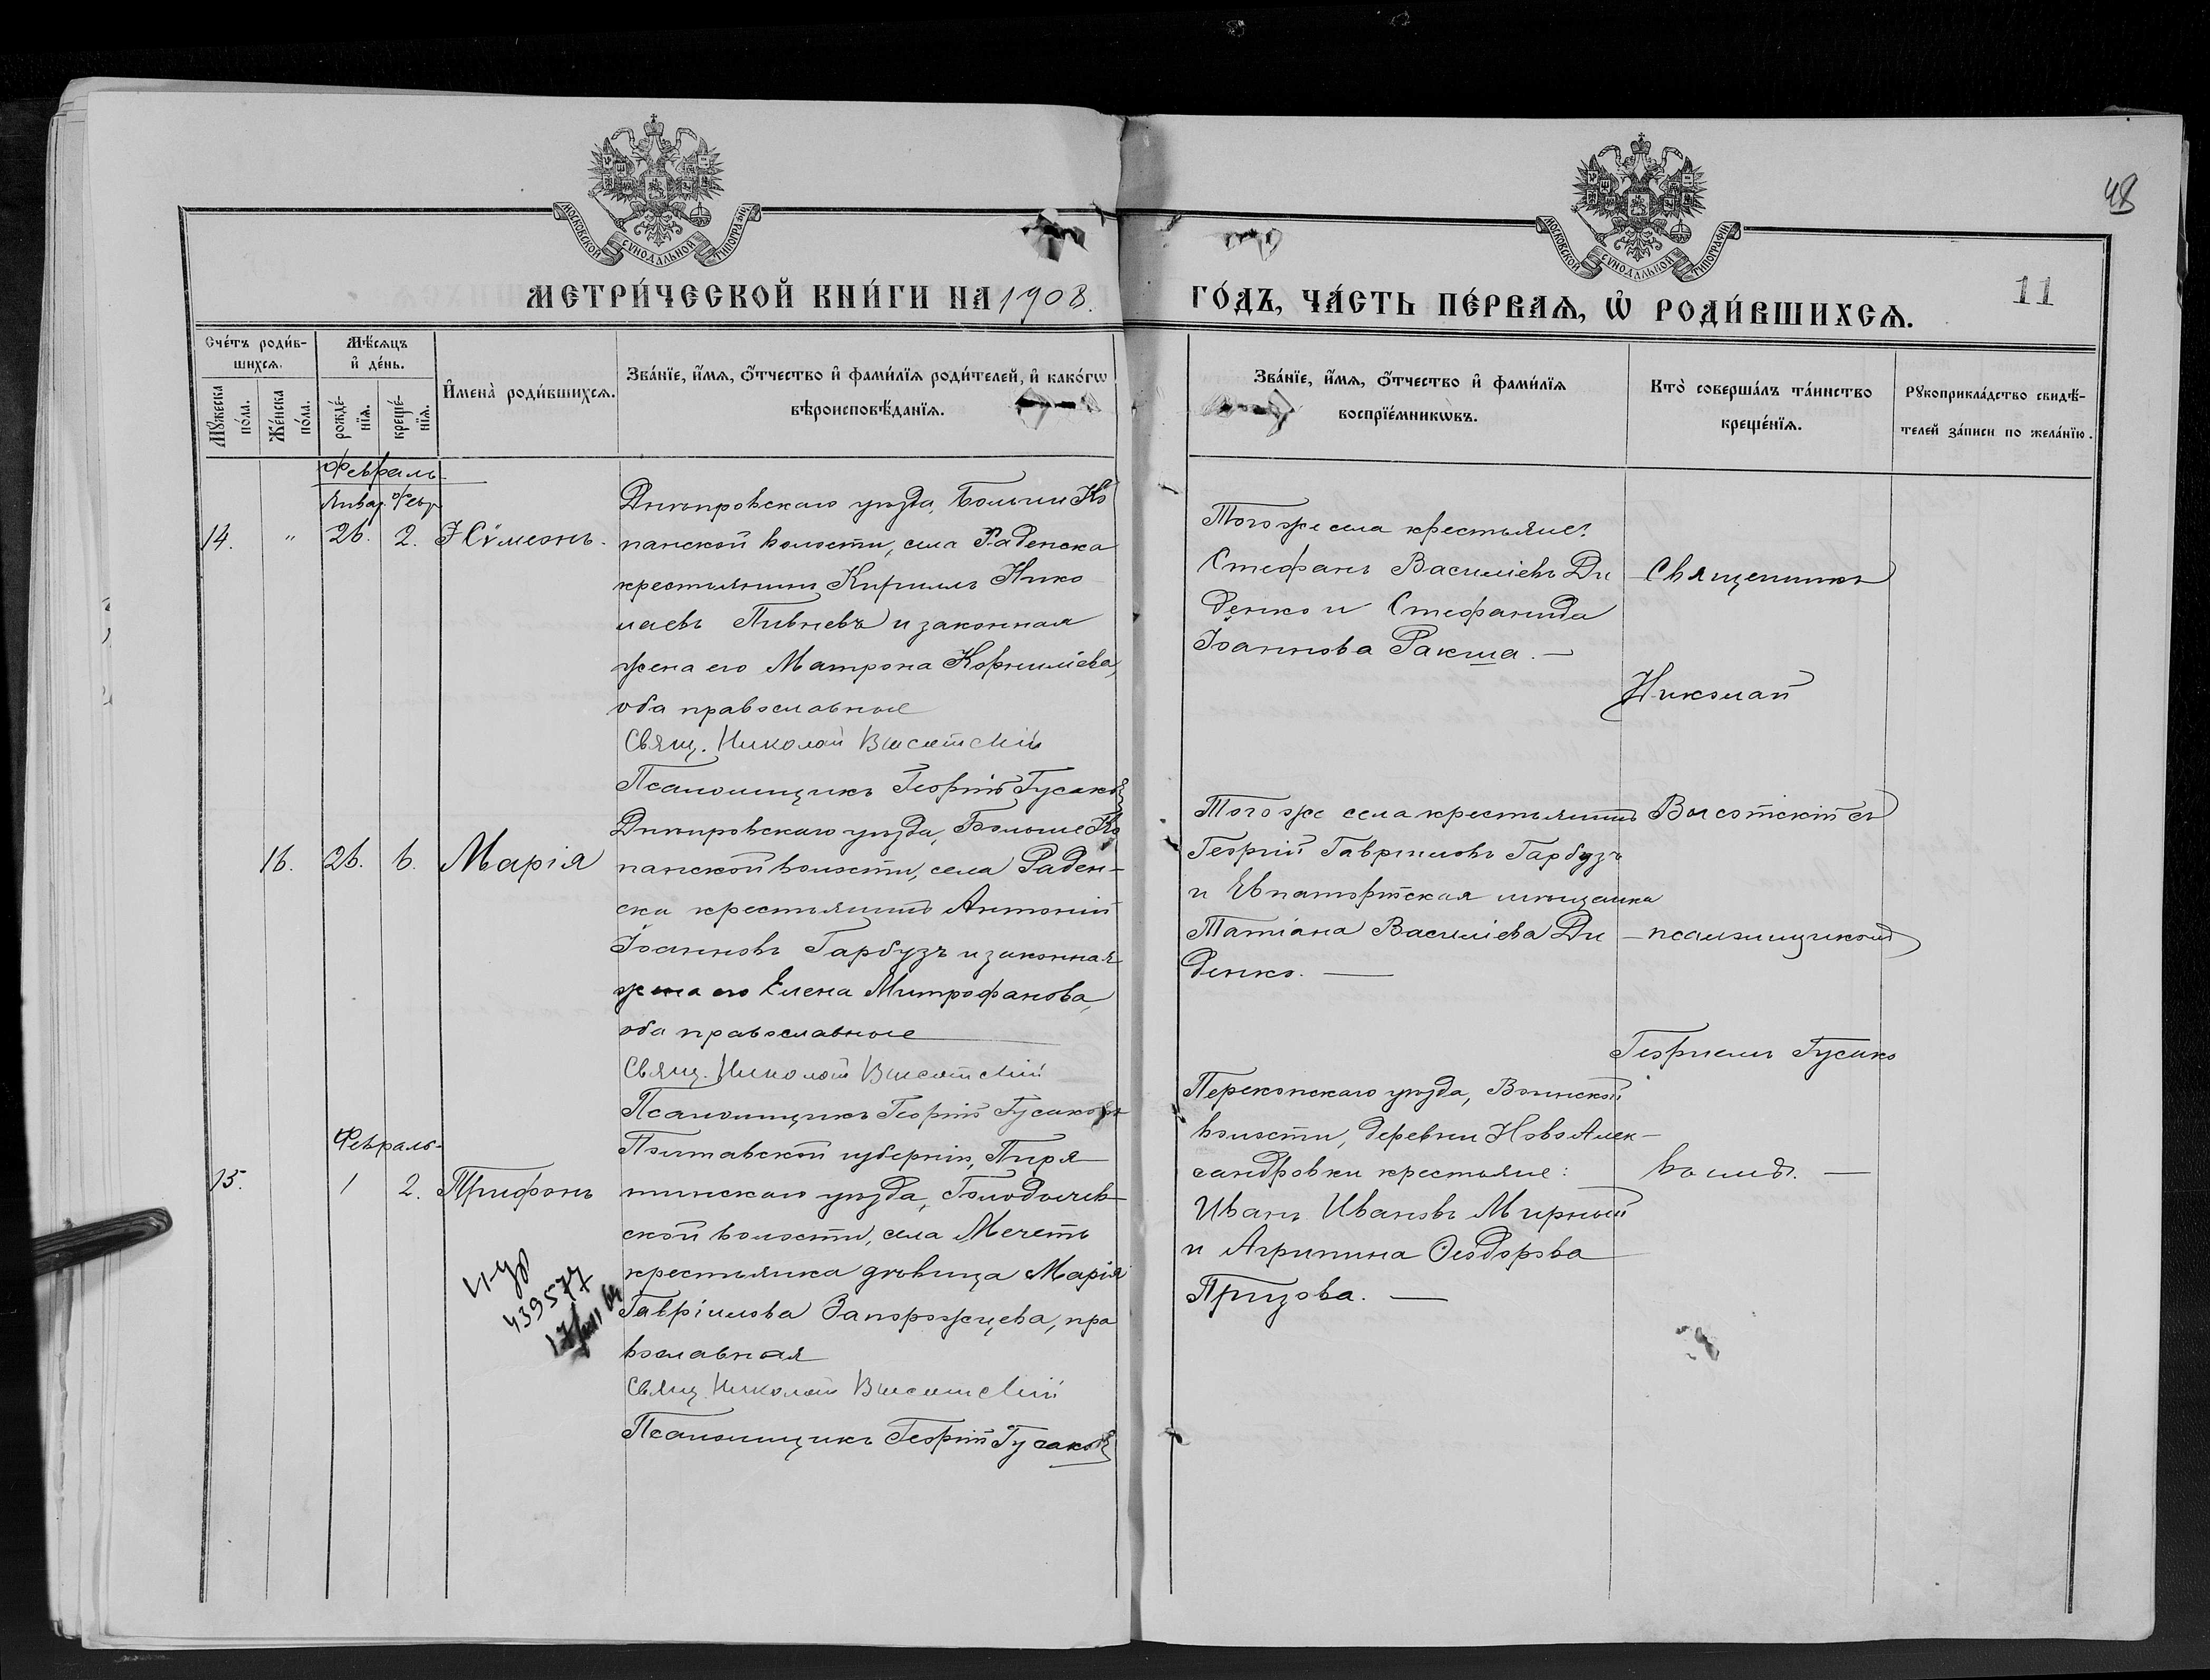 48
МОСКОВСКОЙ СѴНОДАЛЬНОЙ ТИПОГРАФІИ
МОСКОВСКОЙ СѴНОДАЛЬНОЙ ТИПОГРАФІИ
МЕТРИ́ЧЕСКОЙ КНИ́ГИ НА 1908.
ГО́ДЪ, ЧА́СТЬ ПЕ́РВАѦ, Ѡ҆ РОДИ́ВШИХСѦ.
11
Сче́тъ роди́в-
шихсѧ.
Мꙋ́жеска по́ла.
Же́нска по́ла.
Мѣ́сѧцъ
и҆ де́нь.
рожде́-нїѧ.
креще́-нїѧ.
И҆мена̀ роди́вшихсѧ.
Зва́нїе, и҆́мѧ, ѻ҆́тчество и҆ фами́лїѧ роди́телей, и҆ како́гѡ
вѣроисповѣ́данїѧ.
Зва́нїе, и҆́мѧ, ѻ҆́тчество и҆ фами́лїѧ
воспрїе́мникѡвъ.
Кто̀ соверша́лъ та́инство
креще́нїѧ.
Рꙋкоприкла́дство свидѣ́-
телей за́писи по жела́нїю.
Февраль
Январ. Февр
14. " 26. 2. Сѵмеонъ.
Днѣпровскаго уѣзда, Больше Ко
панской волости, села Раденска
крестьянинъ Кириллъ Нико
лаевъ Пивневъ и законная
жена его Матрона Корниліева,
оба православные
Свящ. Николай Высотскій
Псаломщикъ Георгій Гусаковъ
Того же села крестьяне:
Стефанъ Василіевъ Ди
денко и Стефанида
Іоаннова Ракша. —
Священникъ
Николай
16. 26. 6. Марія
Днѣпровскаго уѣзда, Больше Ко
панской волости, села Раден-
ска крестьянинъ Антоній
Іоанновъ Гарбузъ и законная
жена его Елена Митрофанова,
оба православные
Свящ. Николай Высотскій
Псаломщикъ Георгій Гусаковъ
Того же села крестьянинъ
Георгій Гавриловъ Гарбузъ
и Евпаторійская мѣщанка
Татіана Василіева Ди
денко. —
Высотскій съ
псаломщикомъ
Георгіемъ Гусако
Февраль
15. 1 2. Трифонъ
Полтавской губерніи, Пиря
тинскаго уѣзда,
ской волости, села Мечеть
крестьянка дѣвица Марія
Гавріилова Запорожцева, пра
вославная
Свящ. Николай Высотскій
Псаломщикъ Георгій Гусаковъ
439577
Перекопскаго уѣзда, Воинской
волости, деревни Ново Алек-
сандровки крестьяне:
Иванъ Ивановъ Мирный
и Агрипина Ѳеодорова
вымъ. —